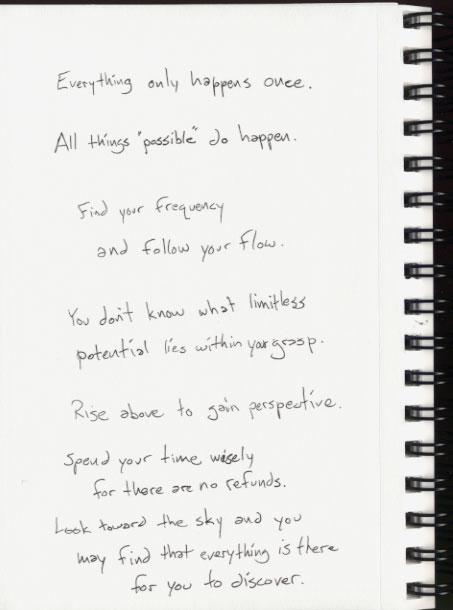 Everything only happens once.
All things "possible" do happen.
Find your frequency
and follow your flow.
You don't know what limitless
potential lies within your grasp.
Rise above to gain perspective.
Spend your time wisely
for there are no refunds.
Look toward the sky and you
may find that everything is there
for you to discover.